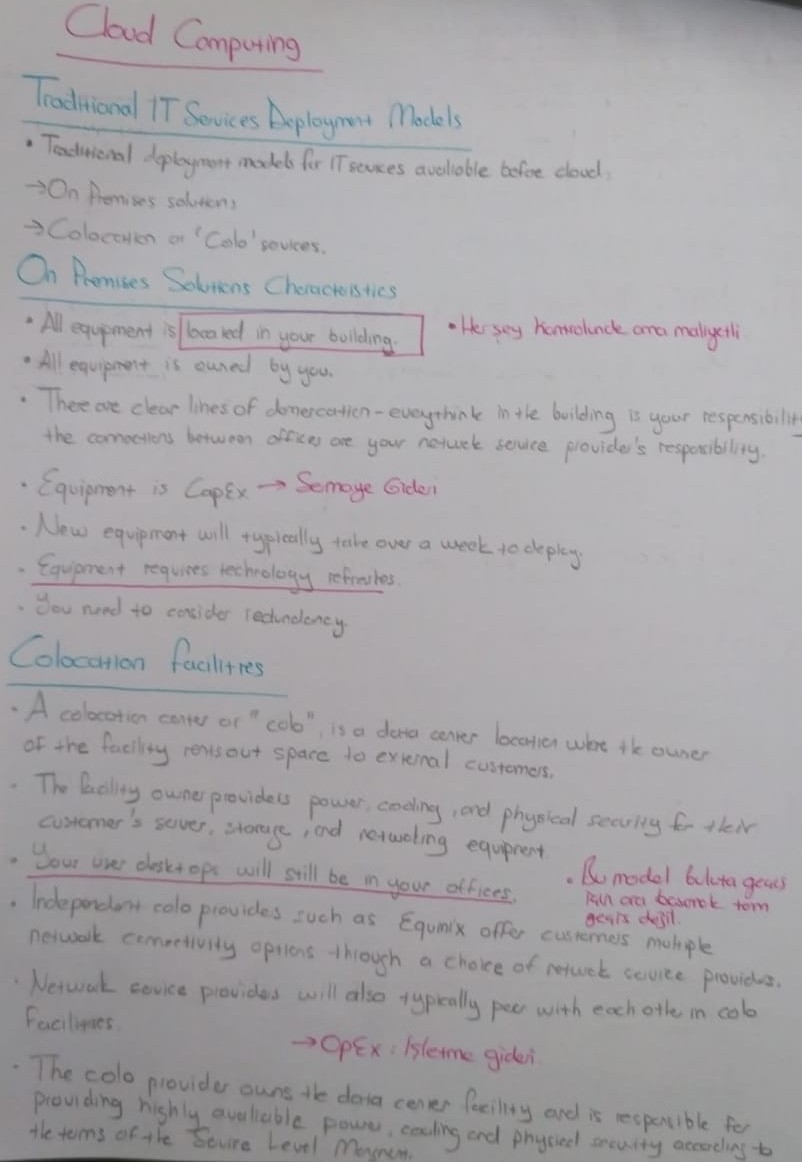 Cloud Computing
Traditional IT Services Deployment Models
• Traditional deployment models for IT services avaliable before cloud.
→ On Premises solutions
→ Colocation or 'Colo' sevices.
On Premises Solutions Characteristics
• All equipment is located in your building. • Herşey kontrolünde ama maliyetli
• All equipment is owned by you.
• There are clear lines of demercation - eveythink in the building is your responsibility
the connections between offices are your network service provider's responsibility.
• Equipment is CapEx → Semaye Gideri
• New equipment will typically take over a week to deploy.
• Equipment requires technology refreshes.
• You need to consider redundency.
Colocation facilities
• A colocation center or "colo", is a data center location where the owner
of the facility rents out space to external customers.
• The facility owner providers power, cooling, and physical security for their
customer's server, storage, and networking equipment
• Your user desktops will still be in your offices. • Bu model buluta geçiş
için ara basamak tam
geçiş değil.
• Independent colo provides such as Equinix offer customers multiple
network connectivity options through a choice of network service providers.
• Network service providers will also typically peer with each other in colo
facilities.
→ OpEx : İşletme gideri
• The colo provider owns the data center facility and is responsible for
providing highly avaliable power, cooling and physical security according to
the terms of the Sevice Level